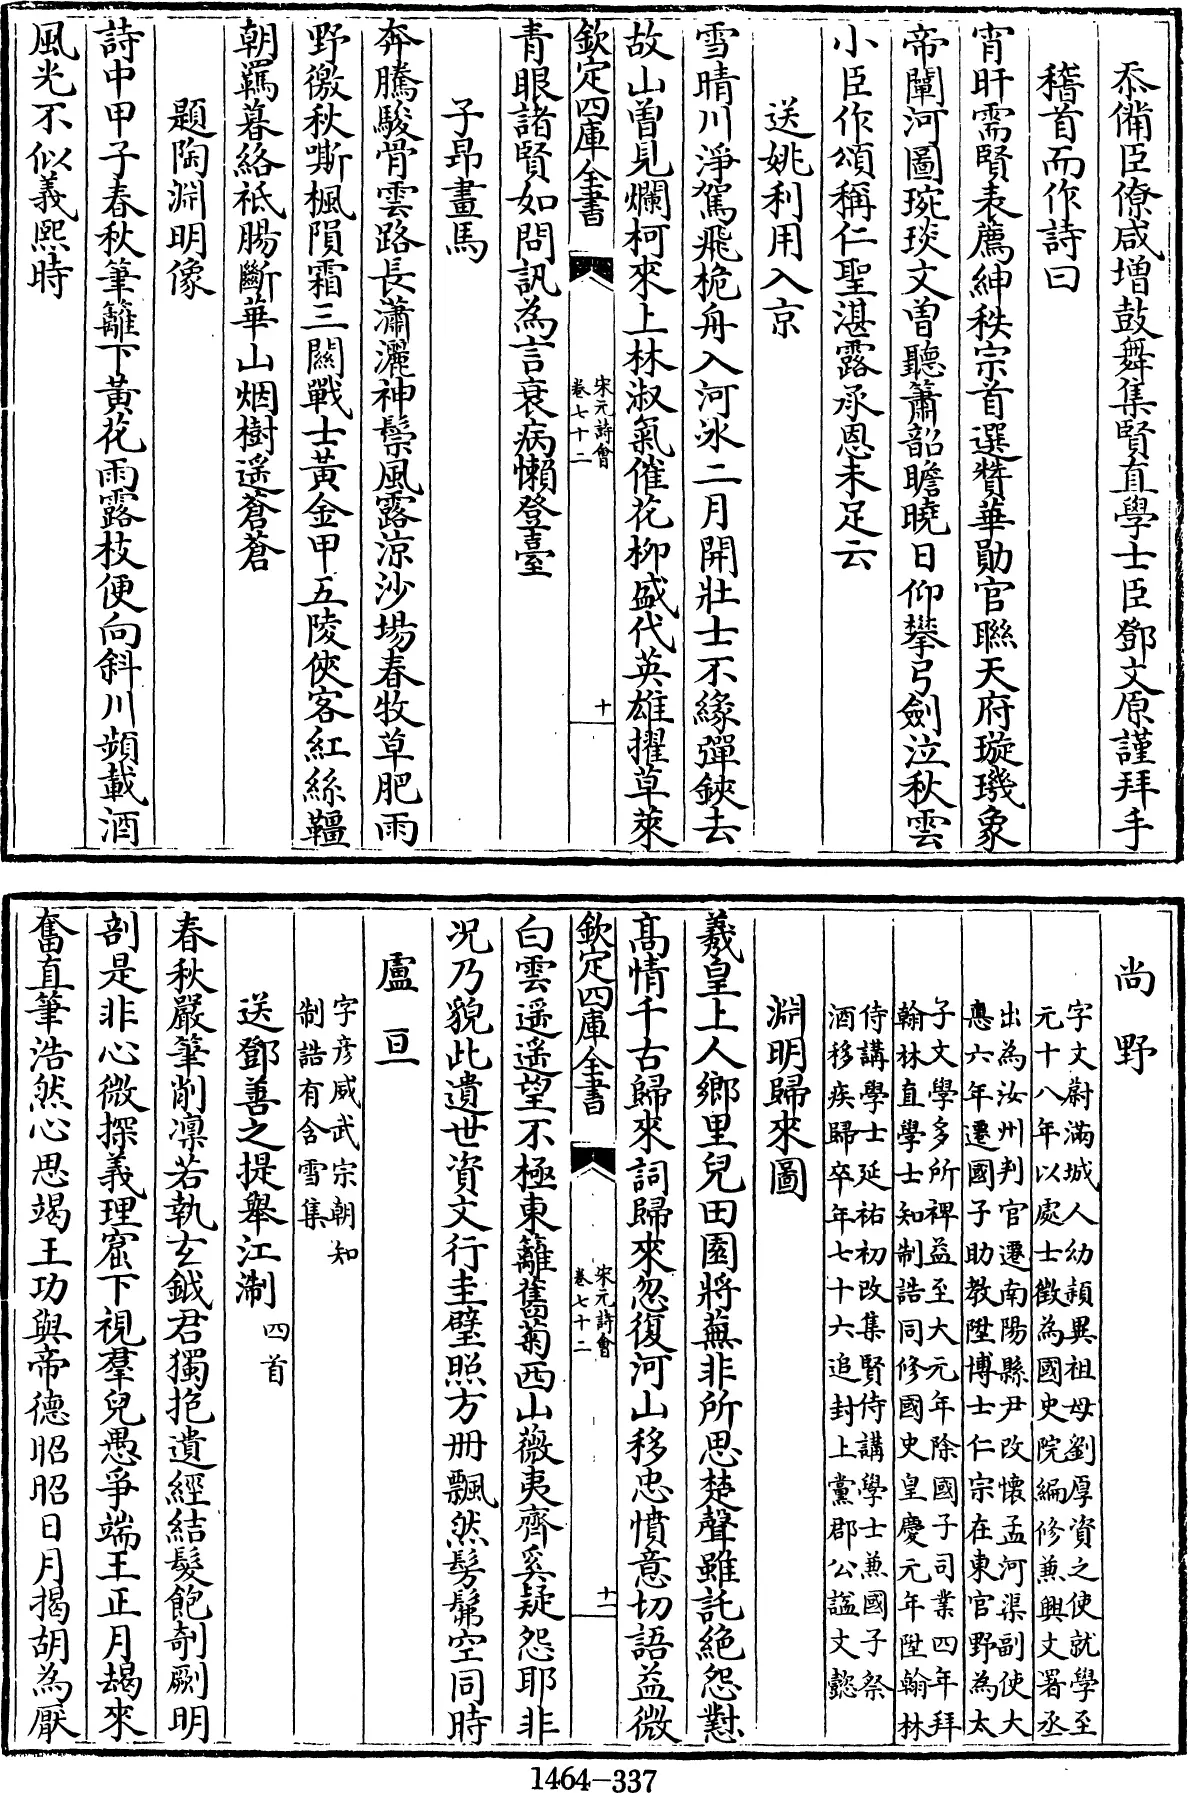 忝備臣僚咸増鼓舞集賢直學士臣鄧文原謹拜手
稽首而作詩曰
宵旰需賢表薦紳秩宗首選贊華勛官聯天府璇璣象
帝闡河圖琬琰文曽聽簫韶瞻曉日仰攀弓劍泣秋雲
小臣作頌稱仁聖湛露承恩未足云
送姚利用入京
雪晴川淨駕飛桅舟入河冰二月開壯士不緣彈鋏去
故山曽見爛柯來上林淑氣催花柳盛代英雄擢草萊
欽定四庫全書
宋元詩會
卷七十二
十
青眼諸賢如問訊為言衰病懶登臺
子昻畫馬
奔騰駿骨雲路長瀟灑神鬃風露涼沙場春牧草肥雨
野徼秋嘶楓隕霜三關戰士黃金甲五陵俠客紅絲韁
朝羈暮絡祗腸斷華山烟樹遥蒼蒼
題陶淵明像
詩中甲子春秋筆籬下黃花雨露枝便向斜川頻載酒
風光不似義熙時
尚野
字文蔚滿城人幼頴異祖母劉厚資之使就學至
元十八年以處士徵為國史院編修兼興文署丞
出為汝州判官遷南陽縣尹改懷孟河渠副使大
悳六年遷國子助教陞博士仁宗在東宫野為太
子文學多所裨益至大元年除國子司業四年拜
翰林直學士知制誥同修國史皇慶元年陞翰林
侍講學士延祐初改集賢侍講學士兼國子祭
酒移疾歸卒年七十六追封上黨郡公諡文懿
淵明歸來圖
羲皇上人鄉里兒田園將蕪非所思楚聲雖託絶怨懟
髙情千古歸來詞歸來忽復河山移忠憤意切語益微
欽定四庫全書
宋元詩會
卷七十二
十一
白雲遥遥望不極東籬舊菊西山薇夷齊奚疑怨耶非
況乃貌此遺世資文行圭璧照方冊飄然髣髴空同時
盧亘
字彦威武宗朝知
制誥有含雪集
送鄧善之提舉江淛 四首
春秋嚴筆削凜若執玄鉞君獨抱遺經結髮飽剞劂明
剖是非心微探義理窟下視羣兒愚爭端王正月朅來
奮直筆浩然心思竭王功與帝德昭昭日月揭胡為厭
1464-337